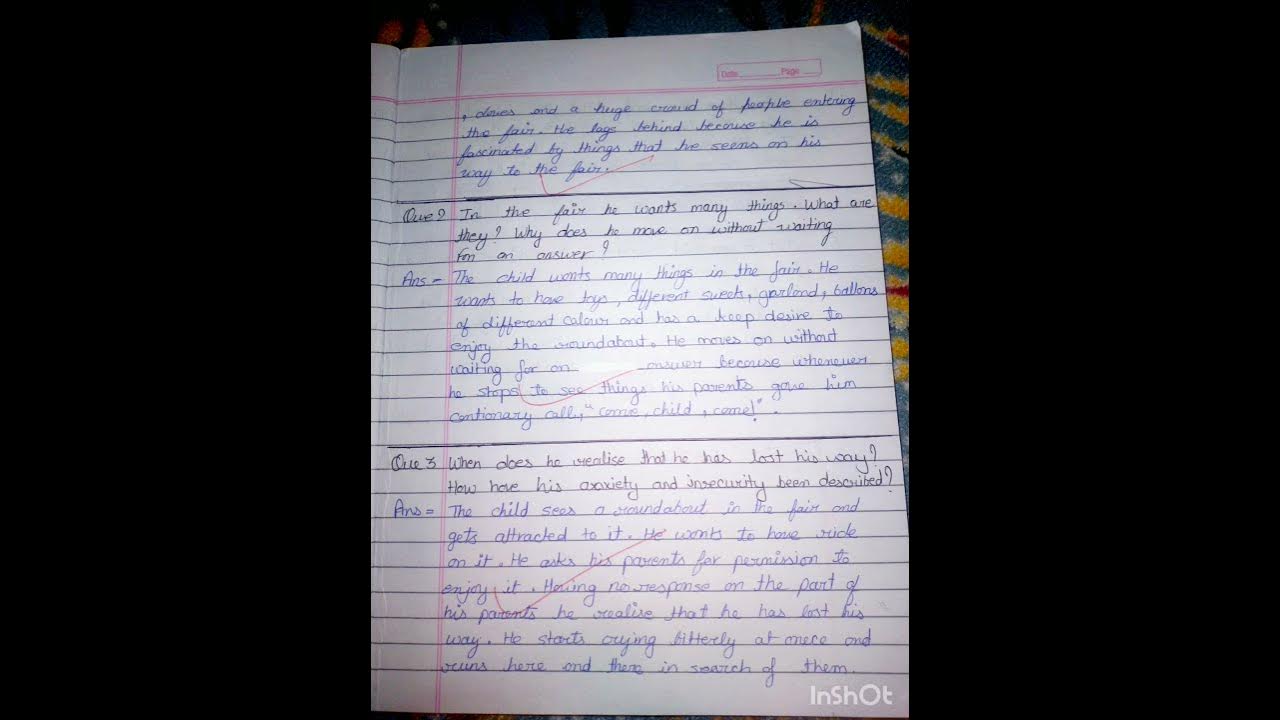 Date Page
, doves and a huge crowd of people entering
the fair. He lags behind because he is
fascinated by things that he seens on his
way to the fair.
Que 2 In the fair he wants many things. What are
they? Why does he move on without waiting
for an answer?
Ans = The child wants many things in the fair. He
wants to have toys, different sweets, garland, ballons
of different colour and has a keep desire to
enjoy the roundabout. He moves on without
waiting for an answer because whenever
he stops to see things his parents gave him
cautionary call, "come, child, come!".
Que 3 When does he realise that he has lost his way?
How have his anxiety and insecurity been described?
Ans = The child sees a roundabout in the fair and
gets attracted to it. He wants to have ride
on it. He asks his parents for permission to
enjoy it. Having no response on the part of
his parents he realise that he has lost his
way. He starts crying bitterly at onece and
runs here and there in search of them.
InShOt